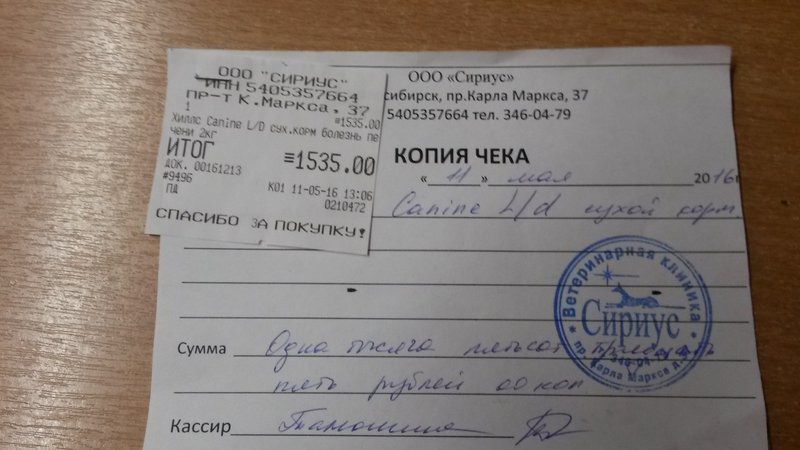 ООО "СИРИУС"
ИНН 5405357664
ПР-Т К.Маркса. 37
1
≡1535.00
Хиллс Canine L/D сух.корм болезнь пе
чени 2кг
ИТОГ ≡1535.00
ДОК. 00161213
#9496 К01 11-05-16 13:06
ПД 0210472
СПАСИБО ЗА ПОКУПКУ!
ООО «Сириус»
сибирск, пр.Карла Маркса, 37
5405357664 тел. 346-04-79
КОПИЯ ЧЕКА
« 11 » мая 2016г
Canine L/d сухой корм
Ветеринарная клиника
Сириус
пр. Карла Маркса
Сумма Одна тысяча пятьсот тридцать
пять рублей 00 коп
Кассир